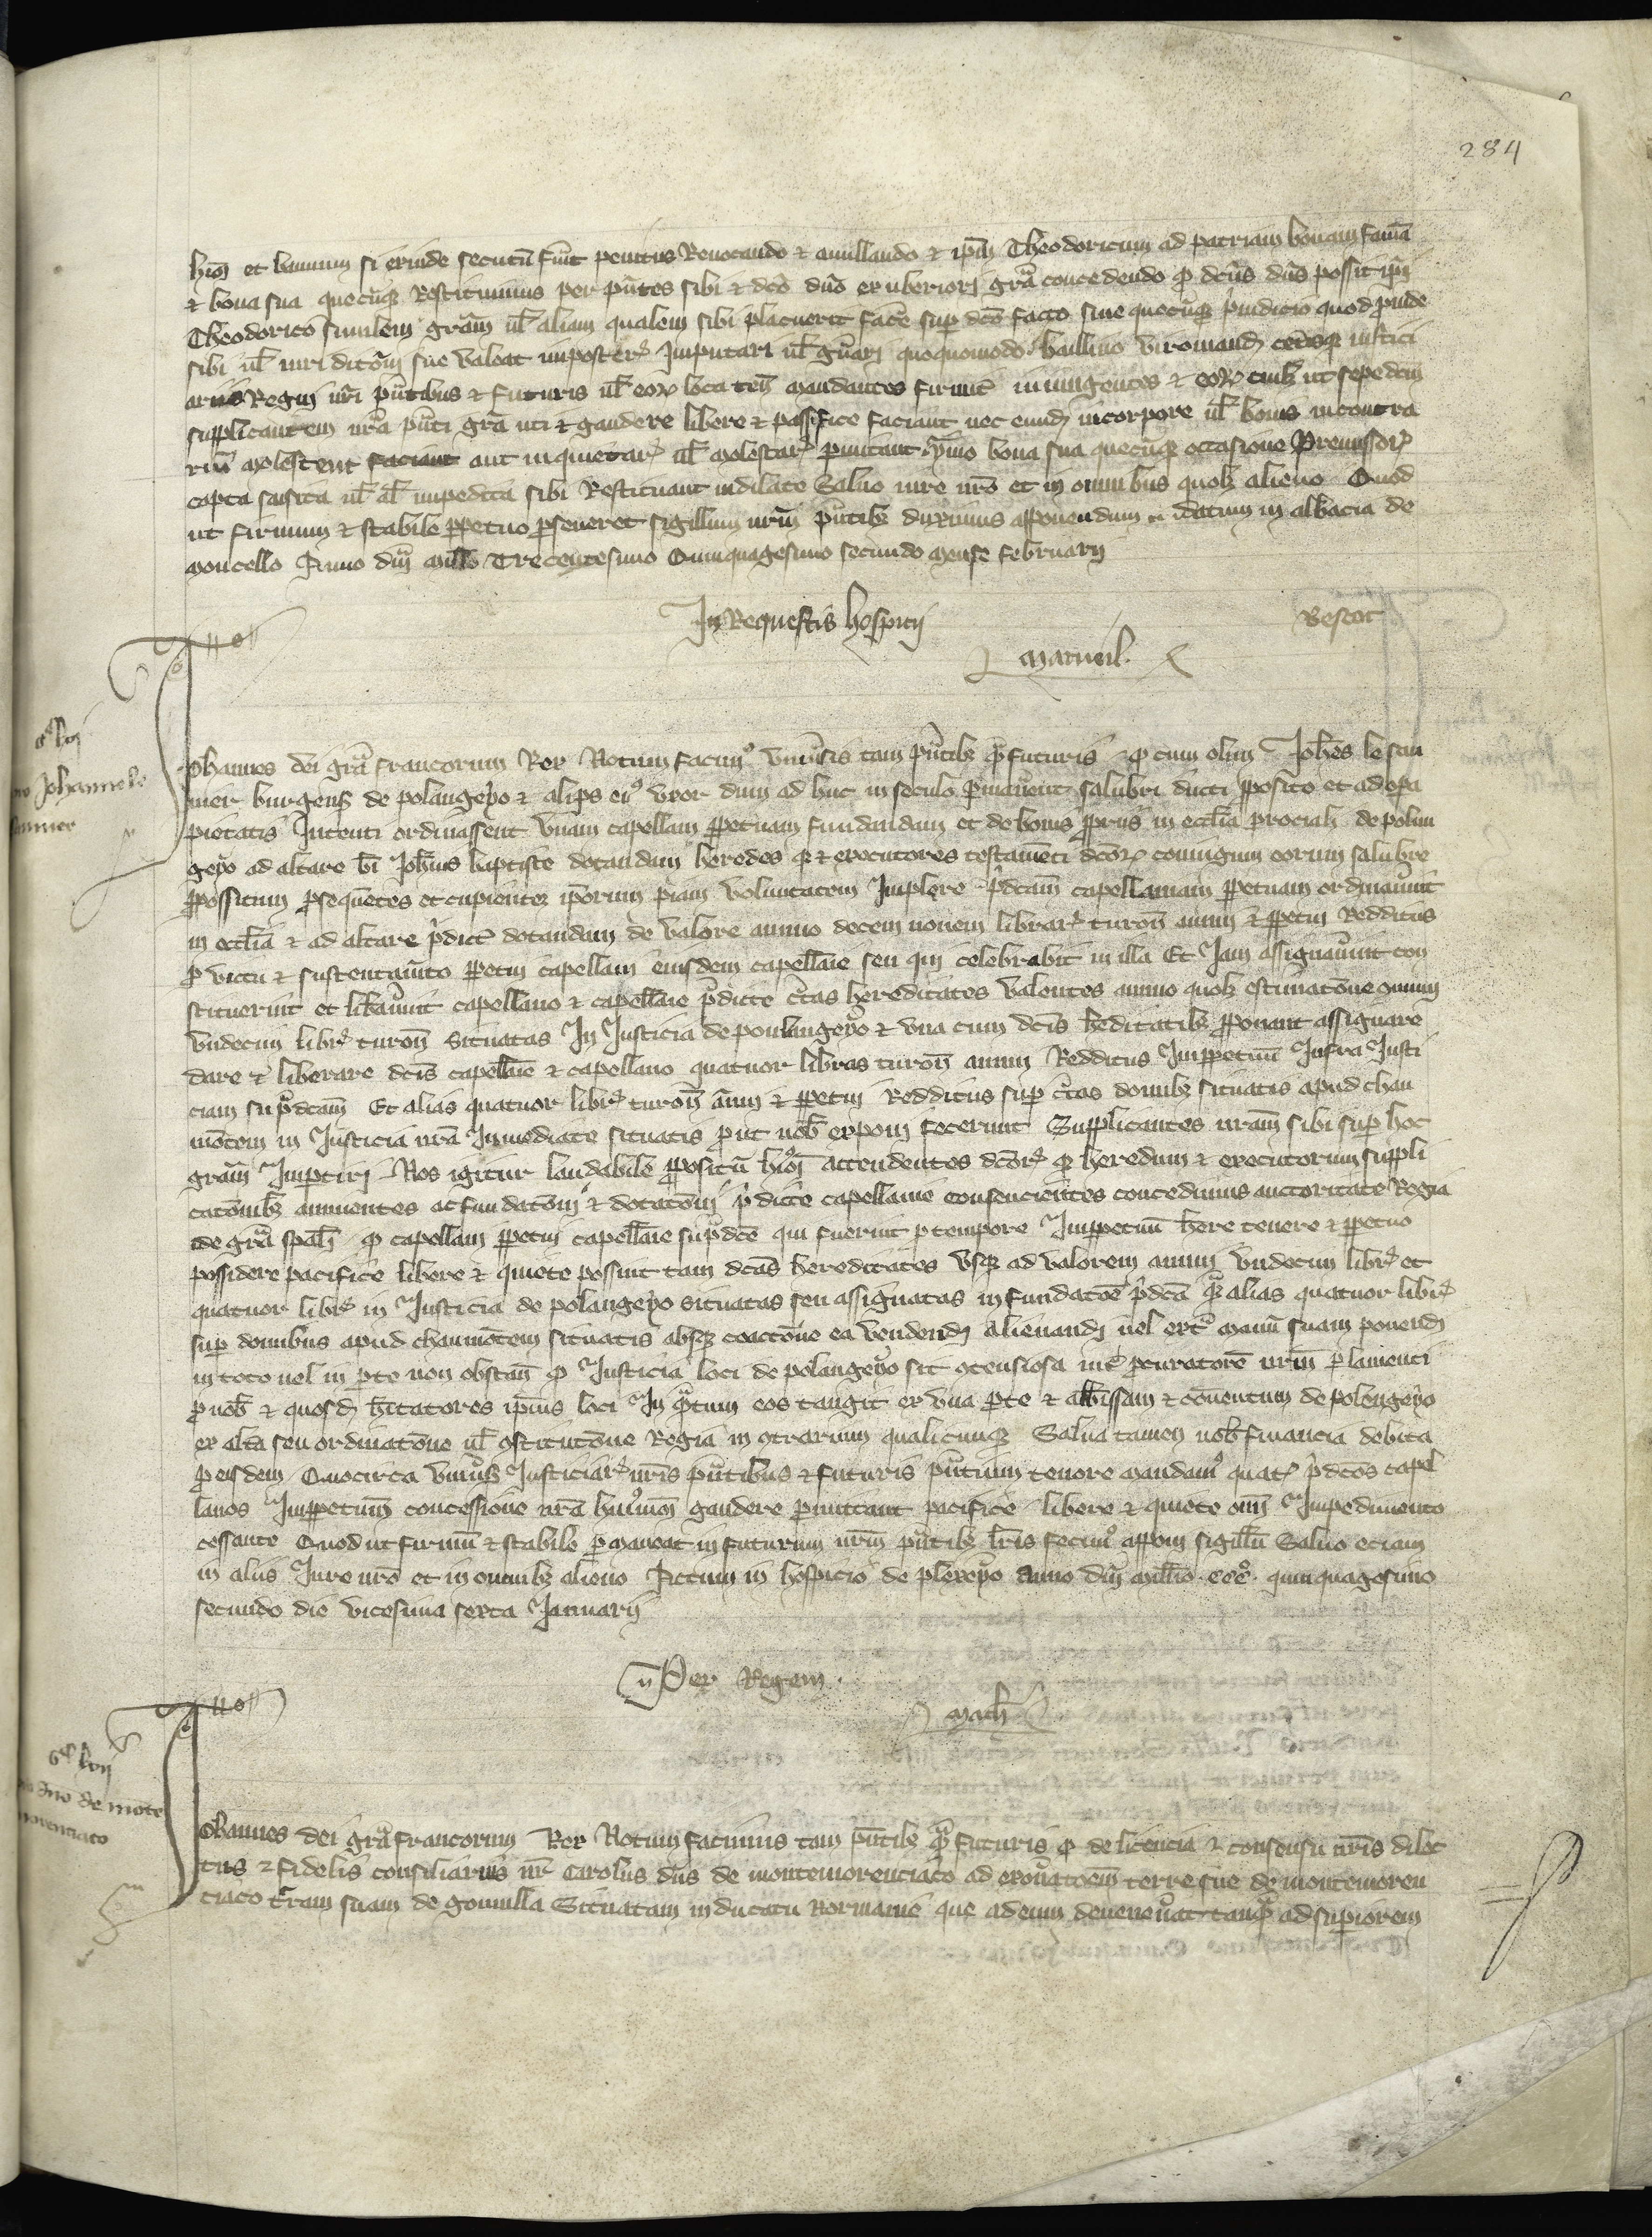 284
huiusmodi et bannum si exinde secutum fuerit penitus Revocando et anullando et ipsum Theodoricum ad patriam bonam famam
et bona sua quecumque Restituimus per presentes sibi et dicto domino ex uberiori gratia concedendo quod dictus dominus possit ipsi
Theodorico similem graciam vel aliam qualem sibi placuerit facere super dicto facto sine quocumque preiudicio quod proinde
sibi vel iuridicioni sue valeat imposterum Imputari vel gravari quoquomodo baillivo viromandensi ceterisque iustici
ariis Regni nostri presentibus et futuris vel eorum loca tenentibus mandantes firmiter iniungentes et eorum cuilibet ut sepedictum
supplicantem nostra presenti gratia uti et gaudere libere et passifice faciant nec eundem in corpore vel bonis in contra
rium molestent faciant aut inquietari vel molestari permittant ymo bona sua quecumque occasione Premissorum
capta saisita vel alias impedita sibi Restituant indilate Salvo iure nostro et in omnibus quolibet alieno Quod
ut firmum et stabile perpetuo perseveret sigillum nostrum presentibus duximus apponendum datum in abbacia de
moncello Anno domini millesimo Trecentesimo Quinquagesimo secundo mense februarii
In Requestis hospicii
Matueil.
Johannes dei gratia francorum Rex Notum facimus universis tam presentibus quam futuris quod cum olim Johannes le sau
nier burgensis de polengeyo et alips eius uxor dum ad huc in seculo permanerent salubri ducti proposito et ad opera
pietatis Intenti ordinassent unam capellam perpetuam fundandam et de bonis propriis in ecclesia parrochiali de polen
geyo ad altare beati Johannis baptiste dotandam heredes que et executores testamenti dictorum coniugum eorum salubre
propositum prosequentes et cupientes ipsorum piam voluntatem Implere predictam capellaniam perpetuam ordinaverunt
in ecclesia et ad altare predictum dotandam de valore annuo decem novem librarum turonensium annui et perpetui Redditus
pro victu et sustentamento perpetui capellani eiusdem capellanie seu qui celebrabit in illa Et Jam assignaverunt con
stituerunt et liberaverunt capellano et capellanie predicte certas hereditates valentes annuo quolibet estimatione communi
undecim libras turonensium situatas In Justicia de poulengeyo et una cum dictis hereditatibus proponant assignare
dare et liberare dictis capellanie et capellano quatuor libras turonensium annui Redditus Imperpetuum Infra Justi
ciam supradictam Et alias quatuor libras turonensium annui et perpetui Redditus super certas domibus situatis apud chau
montem in Justicia nostra Inmediate situatis prout nobis exponi fecerunt Supplicantes nostram sibi super hoc
graciam Impertiri Nos igitur laudabile propositum huiusmodi attendentes dictorum que heredum et executorum suppli
cationibus annuentes ac fundationi et dotationi predicte capellanie consencientes concedimus auctoritate Regia
de gratia speciali quod capellani perpetui capellanie supradicte qui fuerint pro tempore Imperpetuum habere tenere et perpetuo
possidere pacifice libere et quiete possint tam dictas hereditates usque ad valorem annui undecim librarum et
quatuor libras in Justicia de polengeyo situatas seu assignatas in fundatione predicta quam alias quatuor libras
super domibus apud chaumontem situatis absque coactione ea vendendi alienandi vel extra manum suam ponendi
in toto vel in parte non obstante quod Justicia loci de polengeyo sit contensiosa inter procuratorem nostrum parlamenti
pro nobis et quosdam habitatores ipsius loci In quantum eos tangit ex una parte et abbatissam et conventum de polengeyo
ex altera seu ordinatione vel constitutione Regia in contrarium qualicumque Salva tamen nobis financia debita
pro eisdem Quocirca universis Justiciariis nostris presentibus et futuris presentium tenore mandamus quatinus predictos capel
lanos Imperpetuum concessione nostra huiusmodi gaudere permittant pacifice libere et quiete omni Impedimento
cessante Quod ut firmum et stabile permaneat in futurum nostrum presentibus litteris fecimus apponi sigillum Salvo eciam
in aliis Jure nostro et in omnibus alieno Actum in hospicio de plexeyo anno domini millesimo ccc° quinquagesimo
secundo die vicesima sexta Januarii
Per Regem.
Math
Johannes dei gratia francorum Rex Notum facimus tam presentibus quam futuris quod de licencia et consensu nostris dilec
tus et fidelis consiliarius noster Carolus dominus de montemorenciaco ad exonerationem terre sue de montemoren
ciaco terram suam de gonnilla Situatam in ducatu Normanie que ad eum devenerat tanquam ad superiorem